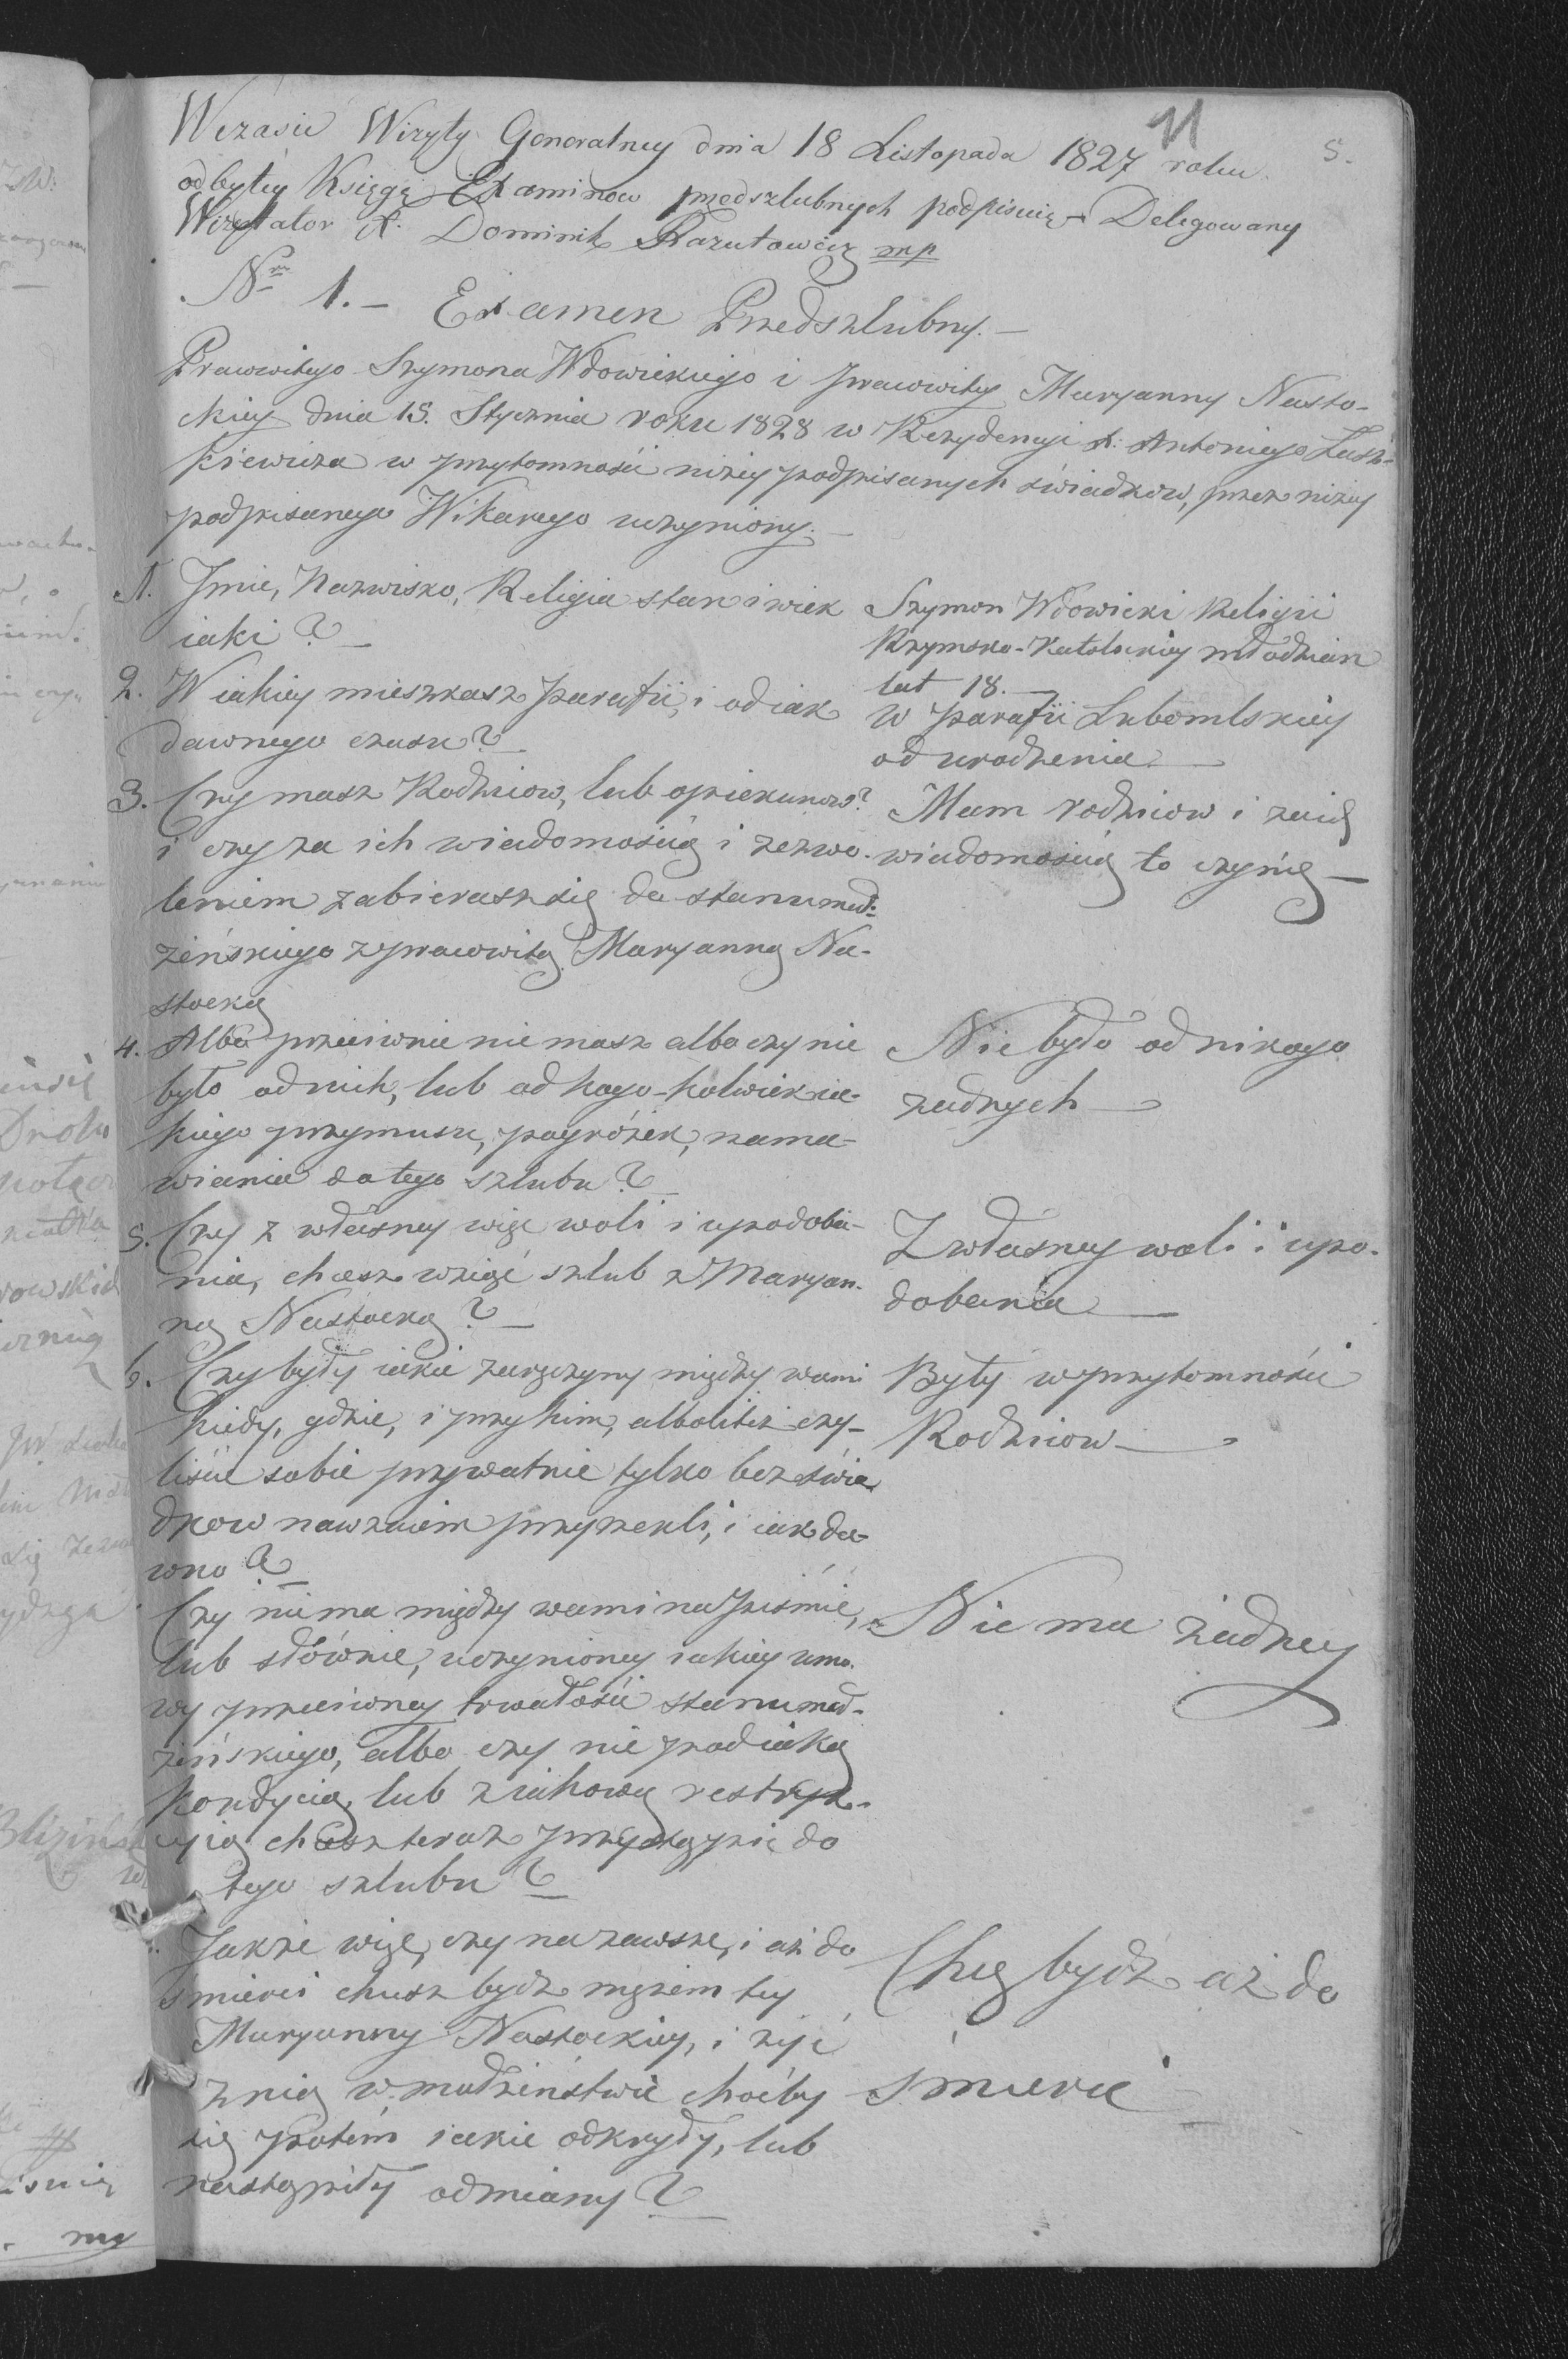 11
5.
Wczasie Wizyty Generalney dnia 18 Listopada 1827 roku
odbytey Księgę Examinow przedszlubnych podpisuię – Delegowany
Wizytator X. Dominik Razutowicz mp
Nro 1. – Examen Przedszlubny. –
Prawowitego Szymona Wdowickiego i prawowitey Maryanny Nasto-
ckiey dnia 15. Stycznia roku 1828 w Rezydencyi X. Antoniego
kiewicza w przytomności niżey podpisanych świadkow, przez niżey
podpisanego Wikarego uczyniony. –
1. Jmie, Nazwisko, Religia stan i wiek
iaki? –
Szymon Wdowicki Religii
Rzymsko-Katolickiey młodzian
lat 18. –
2. W iakiey mieszkasz parafii, i od iak
dawnego czasu?
w parafii Lubomlskiey
od urodzenia –
3. Czy masz Rodziców, lub opiekunow?
i czy za ich wiadomością i zezwo-
leniem zabierasz się do stanu mał-
żeńskiego z prawowitą Maryanną Na-
stocką
Mam rodziców i za ich
wiadomością to czynię –
4. Albo przeciwnie nie masz albo czy nie
było od nich, lub od kogo-kolwiek ia-
kiego przymusu, pogróżek, nama-
wiania do tego szlubu?
Nie było od nikogo
żadnych –
5. Czy z własney więc woli i upodoba-
nia, chcesz wziąć szlub z Maryan-
ną Nastocką? –
Z własney woli i upo-
dobania –
6. Czy były iakie zaręczyny między wami
kiedy, gdzie, i przy kim, albo też czy-
liście sobie prywatnie tylko bez świa
dkow nawzaiem przyrzekli, i iak da-
wno?
Były w przytomności
Rodziców –
Czy nie ma między wami na piśmie,
lub słównie, uczynioney iakiey umo-
wy przeciwney trwałości stanu mał-
żeńskiego, albo czy nie pod iaką
kondycią, lub z iakową restryk-
cyią chcesz teraz przystąpić do
tego szlubu?
Nie ma żadney
Jakże więc, czy na zawsze, i aż do
śmierci chcesz bydź mężem tey
Maryanny Nastockiey, i żyć
z nią w małżeństwie choćby
się potém iakie odkryły, lub
nastąpiły odmiany?
Chcę bydź aż do
śmierci